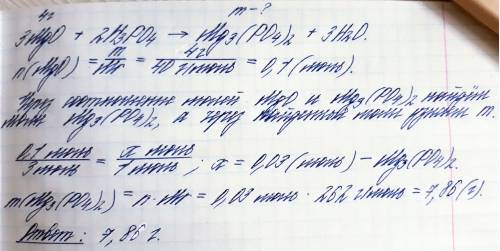 4г m-?
3MgO + 2H3PO4 → Mg3(PO4)2 + 3H2O.
n(MgO) = m/Mr = 4г/40 г/моль = 0,1 (моль).
Через соотношение молей MgO и Mg3(PO4)2 найдём
моль Mg3(PO4)2, а через найденные моли узнаем m.
0,1 моль/3 моль = x моль/1 моль; x = 0,03 (моль) - Mg3(PO4)2.
m(Mg3(PO4)2) = n · Mr = 0,03 моль · 262 г/моль = 7,86 (г).
Ответ: 7,86 г.